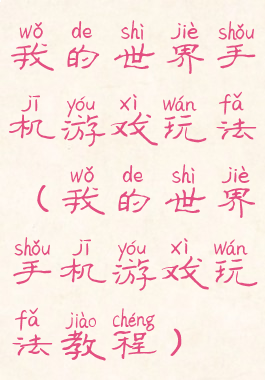 wǒ de shì jiè shǒu
我的世界手
jī yóu xì wán fǎ
机游戏玩法
wǒ de shì jiè
(我的世界
shǒu jī yóu xì wán
手机游戏玩
fǎ jiào chéng
法教程)